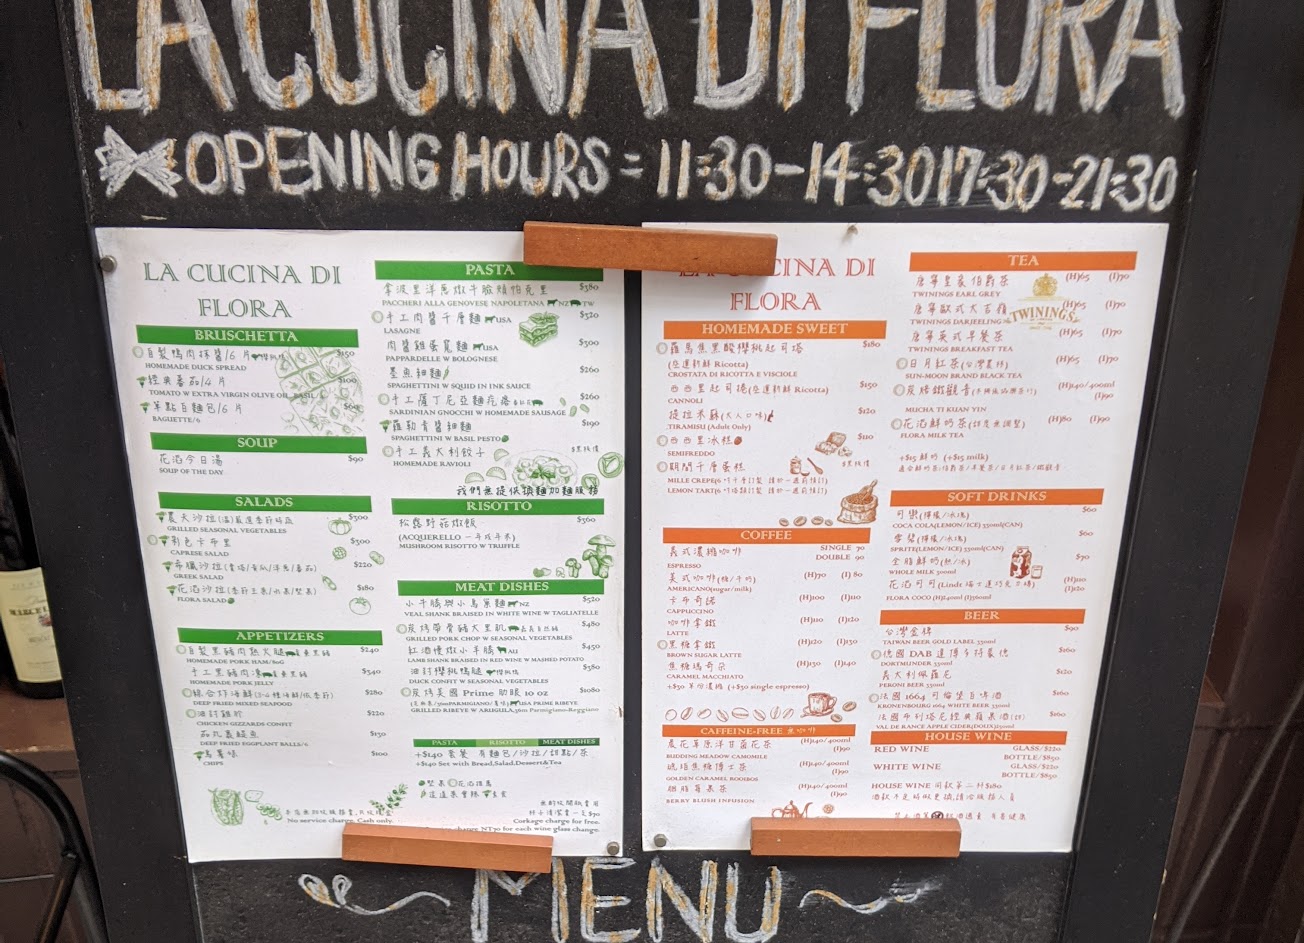 LA CUCINA DI FLORA
OPENING HOURS = 11:30-14:30 17:30-21:30
LA CUCINA DI
FLORA
BRUSCHETTA
自製鴨肉抹醬/6 片 $150
HOMEMADE DUCK SPREAD
經典番茄/4 片 $100
TOMATO W EXTRA VIRGIN OLIVE OIL, BASIL
單點麵包/6 片 $60
BAGUETTE/6
SOUP
花滔今日湯 $90
SOUP OF THE DAY
SALADS
農夫沙拉 $300
GRILLED SEASONAL VEGETABLES
彩色卡布里 $300
CAPRESE SALAD
希臘沙拉 $220
GREEK SALAD
花滔沙拉 $180
FLORA SALAD
APPETIZERS
$240
HOMEMADE PORK HAM/80G
手工黑豬肉凍 $340
HOMEMADE PORK JELLY
綜合炸海鮮 $280
DEEP FRIED MIXED SEAFOOD
油封雞胗 $220
CHICKEN GIZZARDS CONFIT
茄丸裹鯷魚 $150
DEEP FRIED EGGPLANT BALLS/6
馬薯條 $100
CHIPS
No service charge. Cash only.
PASTA
拿波里洋蔥燉牛臉頰帕克里 $380
PACCHERI ALLA GENOVESE NAPOLETANA NZ TW
手工肉醬千層麵 USA $320
LASAGNE
肉醬雞蛋寬麵 USA $300
PAPPARDELLE W BOLOGNESE
墨魚細麵 $260
SPAGHETTINI W SQUID IN INK SAUCE
手工薩丁尼亞麵疙瘩 $260
SARDINIAN GNOCCHI W HOMEMADE SAUSAGE
羅勒青醬細麵 $190
SPAGHETTINI W BASIL PESTO
手工義大利餃子 $黑板價
HOMEMADE RAVIOLI
我們無提供換麵加麵服務
RISOTTO
松露野菇燉飯 $360
(ACQUERELLO 一年改半米)
MUSHROOM RISOTTO W TRUFFLE
MEAT DISHES
小牛膝與小鳥窩麵 NZ $520
VEAL SHANK BRAISED IN WHITE WINE W TAGLIATELLE
炭烤帶骨豬大里肌 $480
GRILLED PORK CHOP W SEASONAL VEGETABLES
紅酒慢燉小羊膝 AU $450
LAMB SHANK BRAISED IN RED WINE W MASHED POTATO
油封櫻桃鴨腿 $380
DUCK CONFIT W SEASONAL VEGETABLES
炭烤美國 Prime 肋眼 10 oz $1080
USA PRIME RIBEYE
GRILLED RIBEYE W ARUGULA, 36m Parmigiano-Reggiano
PASTA RISOTTO MEAT DISHES
+$140 套餐 有麵包/沙拉/甜點/茶
+$140 Set with Bread,Salad,Dessert&Tea
Corkage charge for free.
charge NT70 for each wine glass change.
LA CUCINA DI
FLORA
HOMEMADE SWEET
羅馬焦黑酸櫻桃起司塔 $180
(空運新鮮 Ricotta)
CROSTATA DI RICOTTA E VISCIOLE
西西里起司捲(空運新鮮 Ricotta) $150
CANNOLI
提拉米蘇(大人口味) $120
TIRAMISU (Adult Only)
西西里冰糕 $110
SEMIFREDDO
期間千層蛋糕 $黑板價
MILLE CREPE
LEMON TART
COFFEE
義式濃縮咖啡 SINGLE 70
DOUBLE 90
ESPRESSO
美式咖啡(糖/牛奶) (H)70 (I) 80
AMERICANO(sugar/milk)
卡布奇諾 (H)100 (I)110
CAPPUCCINO
咖啡拿鐵 (H)110 (I)120
LATTE
黑糖拿鐵 (H)120 (I)130
BROWN SUGAR LATTE
焦糖瑪奇朵 (H)130 (I)140
CARAMEL MACCHIATO
+$30 單份濃縮 (+$30 single espresso)
CAFFEINE-FREE 無咖啡
農花草原洋甘菊花茶 (H)140/400ml
(I)90
BUDDING MEADOW CAMOMILE
琥珀焦糖博士茶 (H)140/400ml
(I)90
GOLDEN CARAMEL ROOIBOS
個脂莓果茶 (H)140/400ml
(I)90
BERRY BLUSH INFUSION
TEA
唐寧皇家伯爵茶 (H)65 (I)70
TWININGS EARL GREY
唐寧歐式大吉嶺 (H)65 (I)70
TWININGS DARJEELING
TWININGS
唐寧英式早餐茶 (H)65 (I)70
TWININGS BREAKFAST TEA
日月紅茶(台灣農林) (H)65 (I)70
SUN-MOON BRAND BLACK TEA
炭焙鐵觀音 (H)140/400ml
(I)90
MUCHA TI KUAN YIN
花滔鮮奶茶 (H)80 (I)90
FLORA MILK TEA
+$15 鮮奶 (+$15 milk)
SOFT DRINKS
可樂(檸檬/冰塊) $60
COCA COLA(LEMON/ICE) 330ml(CAN)
雪碧(檸檬/冰塊)
SPRITE(LEMON/ICE) 330ml(CAN)
全脂鮮奶(熱/冰) $70
WHOLE MILK 300ml
花滔可可(Lindt 瑞士蓮巧克力磚) (H)110
(I)120
FLORA COCO (H)240ml (I)360ml
BEER
台灣金牌 $90
TAIWAN BEER GOLD LABEL 330ml
德國 DAB 達博多特蒙德 $160
DORTMUNDER 330ml
義大利佩羅尼 $120
PERONI BEER 330ml
法國 1664 可倫堡白啤酒 $160
KRONENBOURG 1664 WHITE BEER 330ml
法國布列塔尼經典蘋果酒(甜) $160
VAL DE RANCE APPLE CIDER(DOUX)250ml
HOUSE WINE
RED WINE GLASS/$220
BOTTLE/$850
WHITE WINE GLASS/$220
BOTTLE/$850
HOUSE WINE 同款第二杯$180
MENU